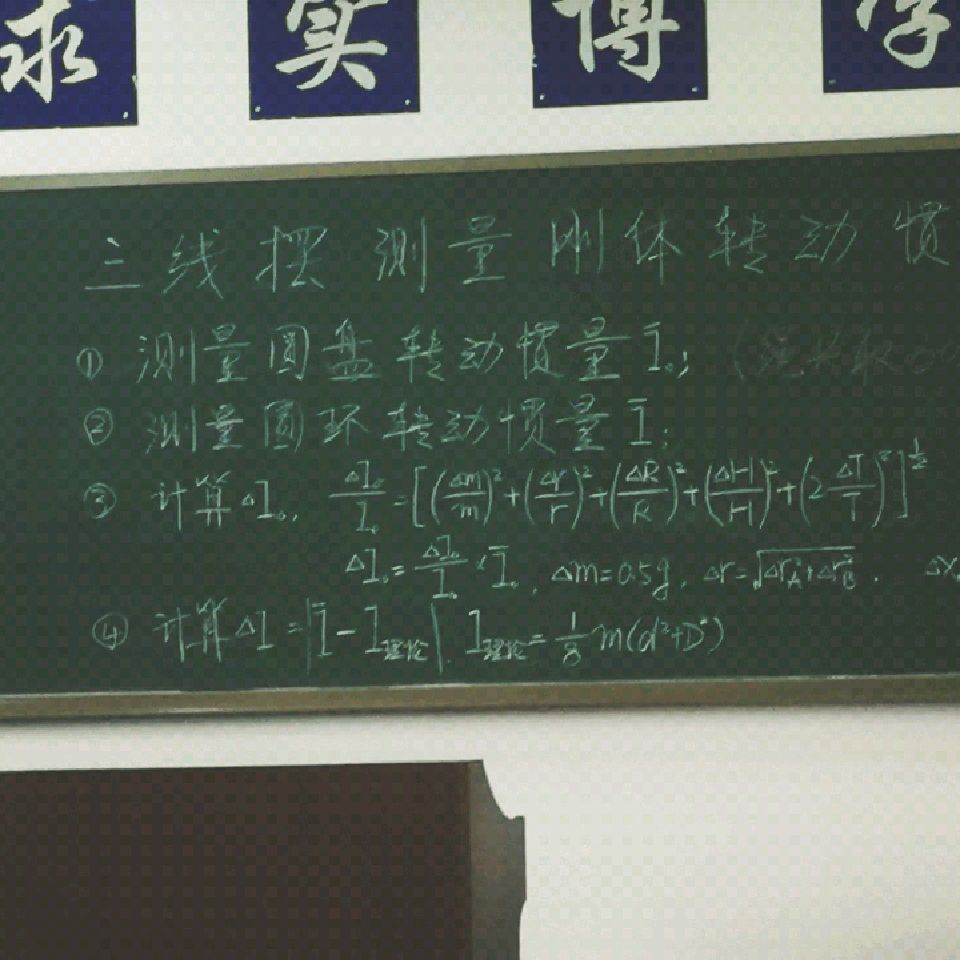 求 实 博 学
三线摆测量刚体转动惯
① 测量圆盘转动惯量Ī₀;
② 测量圆环转动惯量Ī;
③ 计算ΔI₀, ΔI₀/I₀=[(Δm/m)²+(Δr/r)²+(ΔR/R)²+(ΔH/H)²+(2ΔT/T)²]^½
ΔI₀=ΔI₀/I₀×Ī₀, Δm=0.5g, Δr=√(Δr_A²+Δr_B²),
④ 计算ΔI=|Ī-I理论| I理论=1/8 m(d²+D²)